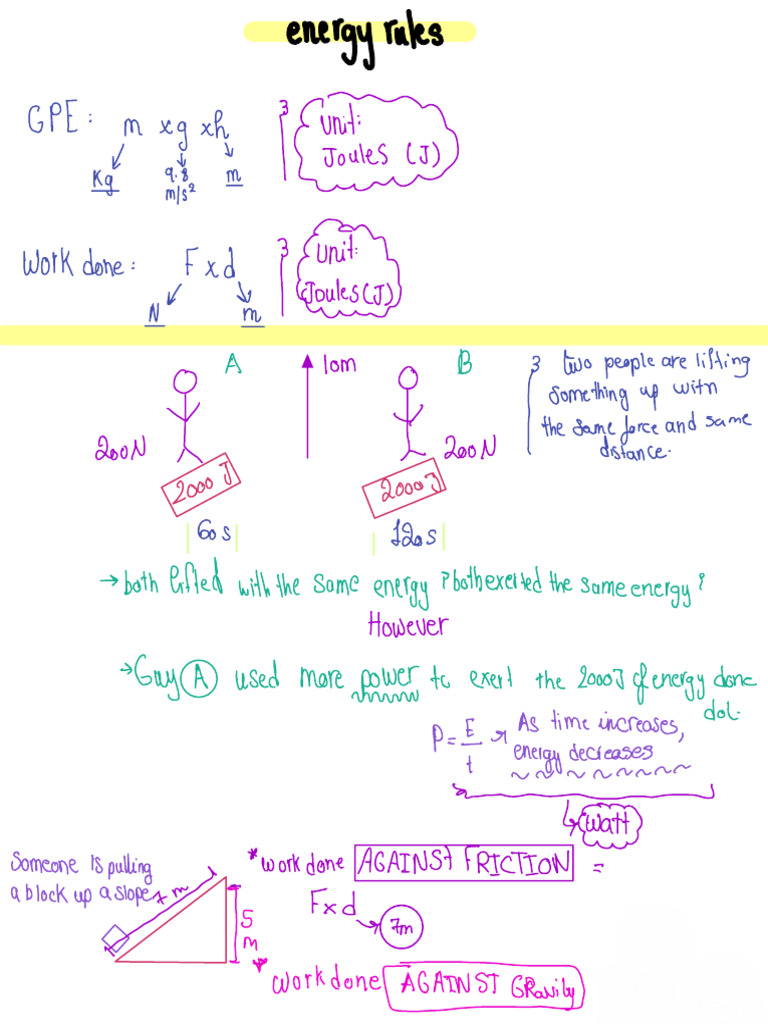 energy rules
GPE: m x g x h
Kg 9.8 m/s² m
Unit:
Joules (J)
Work done: F x d
N m
Unit:
Joules (J)
A 10m B
200N 200N
2000 J 2000 J
60s 120s
two people are lifting
something up with
the same force and same
distance.
→ both lifted with the same energy & both exerted the same energy!
However
→ Guy A used more power to exert the 2000J of energy done
P = E/t → As time increases,
energy decreases
Watt
Someone is pulling
a block up a slope
7m
5
m
* work done AGAINST FRICTION =
F x d → 7m
* work done AGAINST Gravity